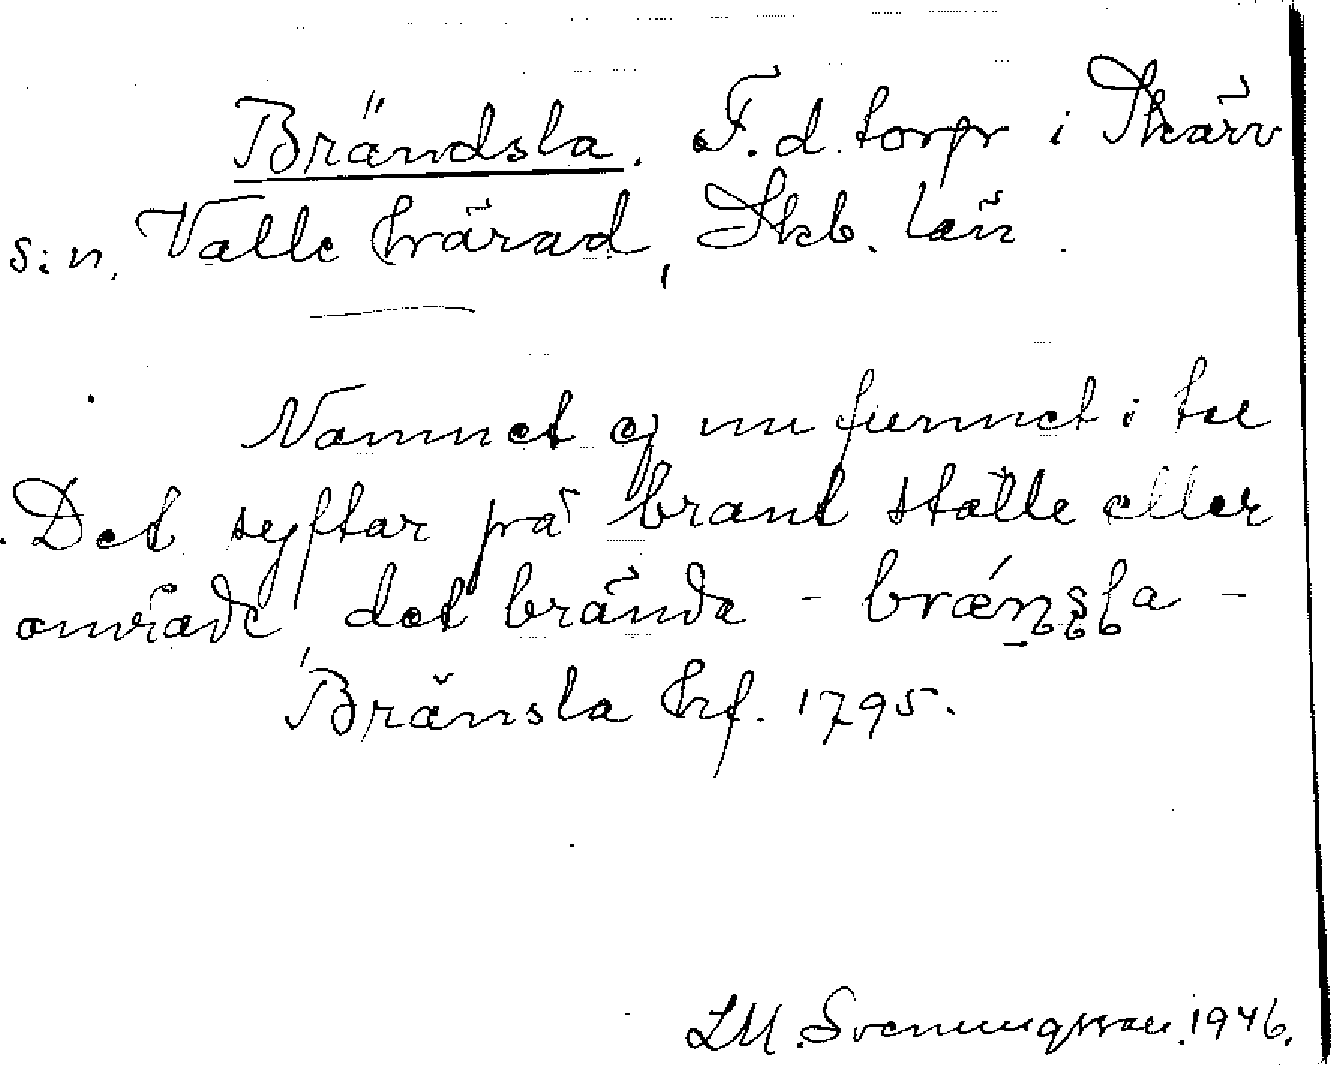 Brändsla. F.d. torp i Skärv
s:n. Valle härad, Skb. län.
Namnet ej nu funnet i tal
Det syftar på brant ställe eller
område det brända - brǽnsla -
Bränsla hf. 1795.
LM. Svenungsson. 1946.